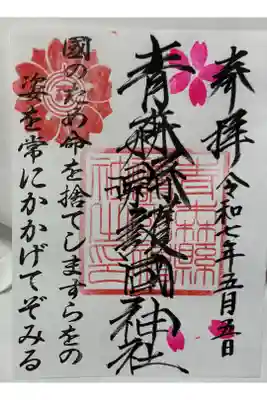 奉拝 令和七年五月五日
青森縣護國神社
青森縣護國神社之印
國のため命を捨てしますらをの
姿を常にかかげてぞみる